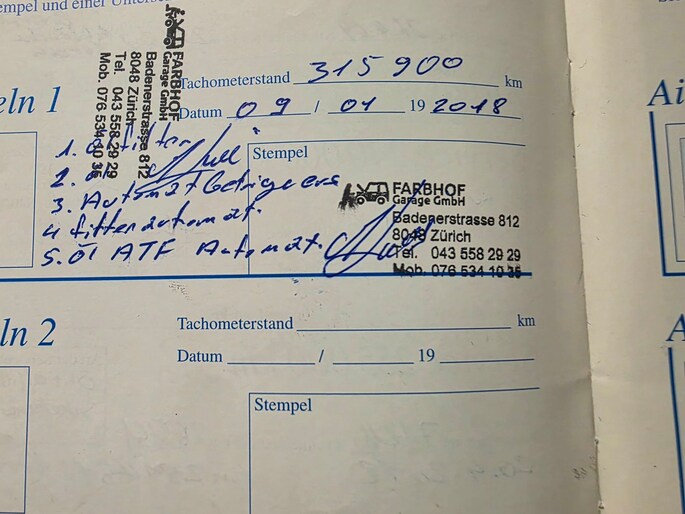 empel und einer Unters
FARBHOF
Garage GmbH
Badenerstrasse 812
8048 Zürich
Tel. 043 558 29 29
Mob. 076 534 10 35
eln 1
Tachometerstand 315 900 km
Datum 09 / 01 19 2018
Stempel
1. filter
2.
3. Automat
4. filter automat.
5. Öl ATF Automat.
FARBHOF
Garage GmbH
Badenerstrasse 812
8048 Zürich
Tel. 043 558 29 29
Mob. 076 534 10 35
Ai
eln 2
Tachometerstand km
Datum / 19
Stempel
A